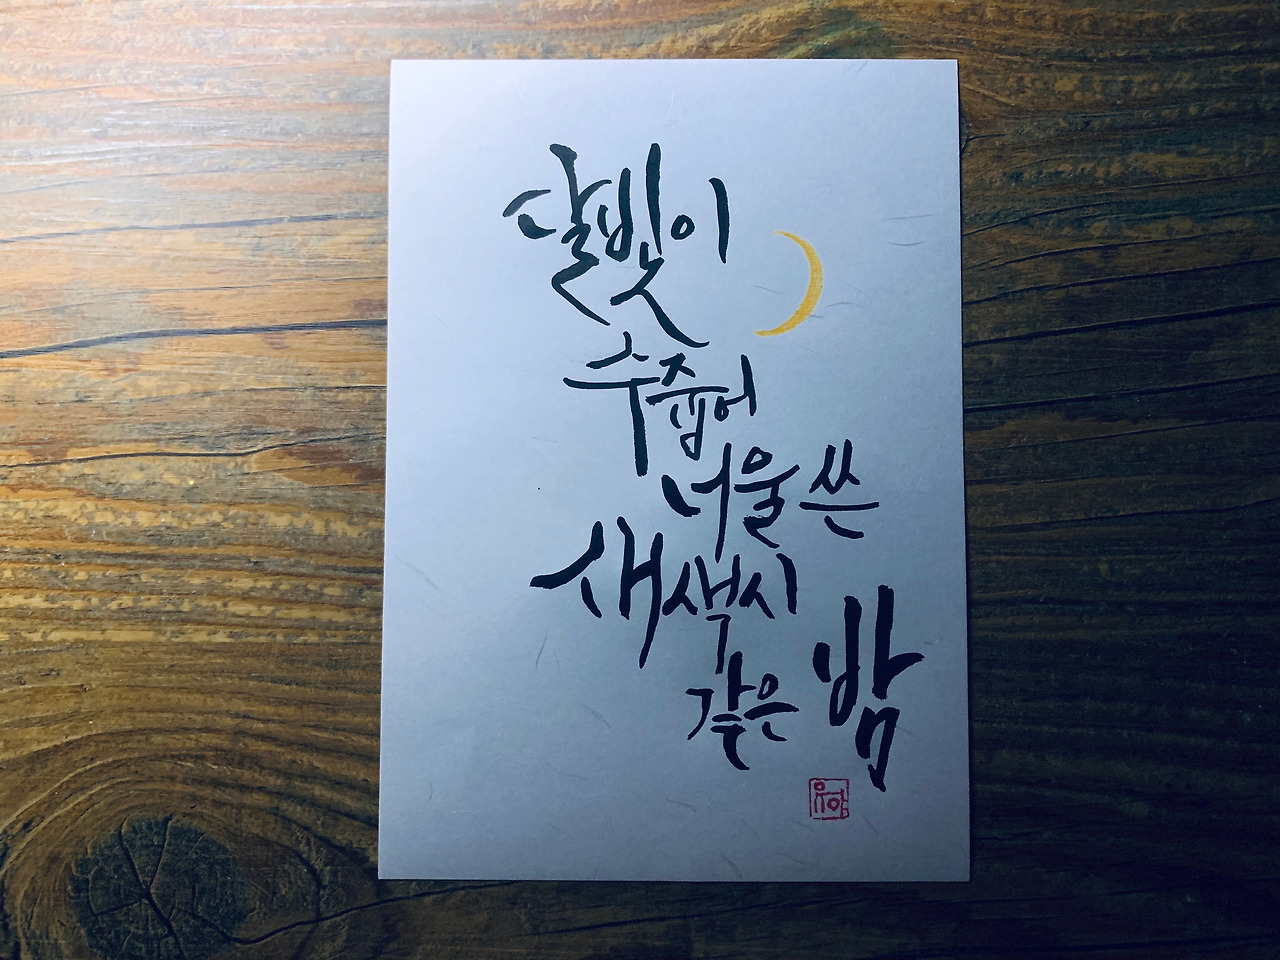 달빛이
수줍어
너울 쓴
새색시
같은 밤